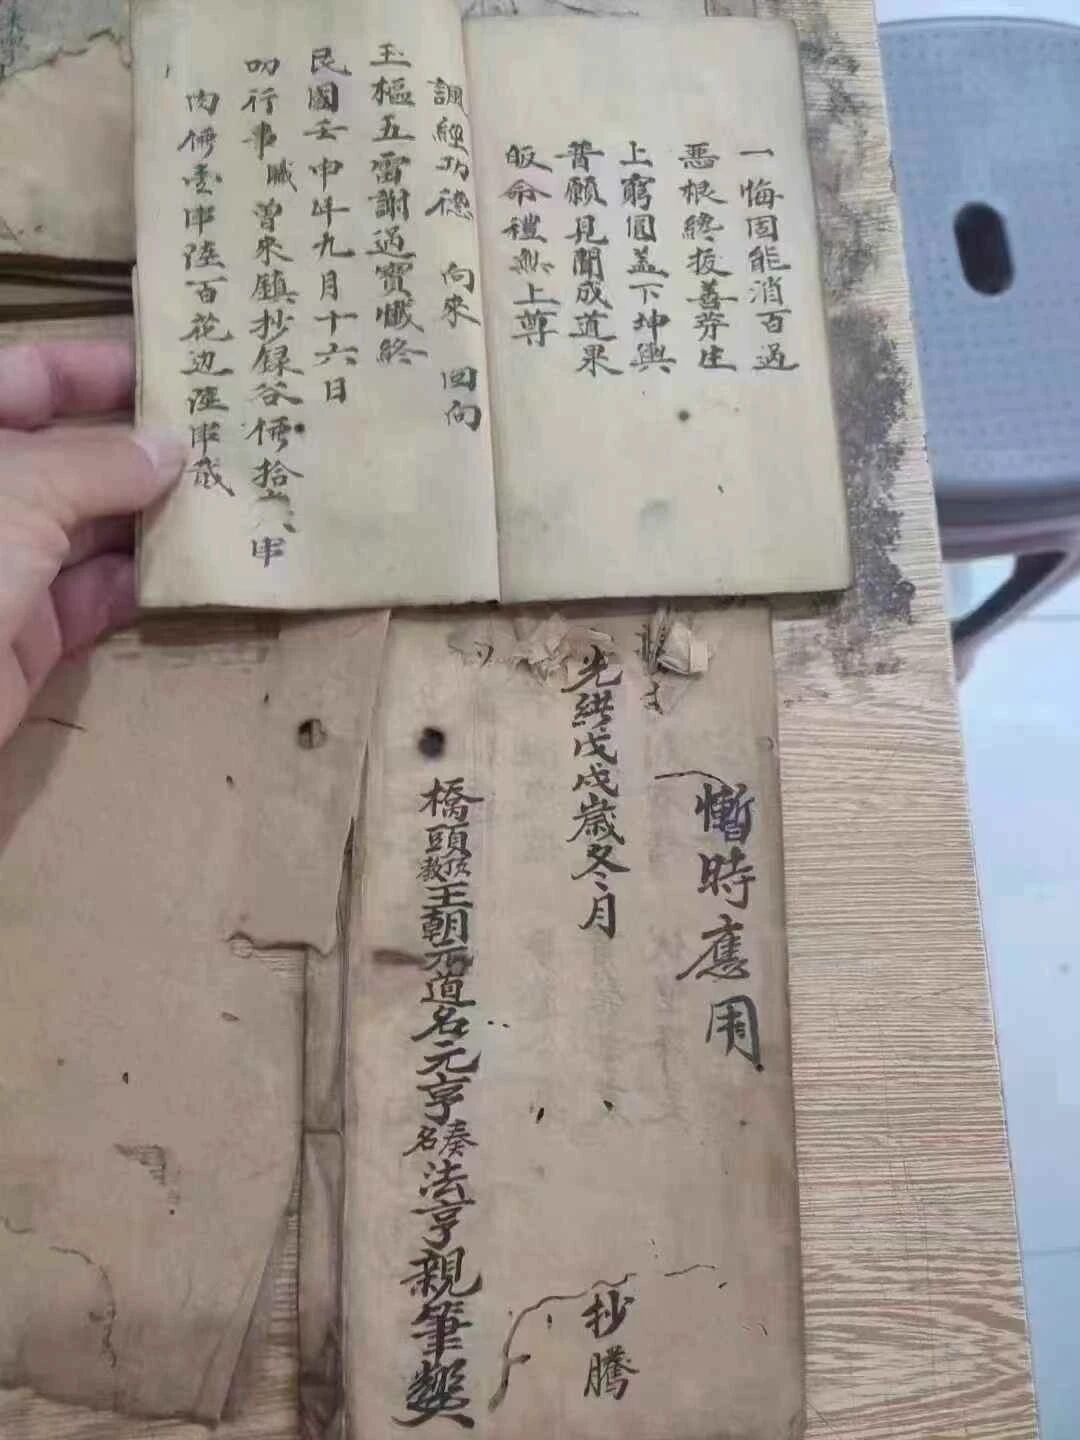 一悔固能消百過
惡根終拔善芽生
上窮圓蓋下坤輿
普願見聞成道果
皈命禮無上尊
諷經功德 向來 回向
玉樞五雷謝過寶懺終
民國壬申年九月十六日
叨行事職曾來鎮抄録谷俻拾六串
內俻壹串陸百花边陸串
暫時應用
光緒戊戌歲冬月
抄騰
橋頭頂敎王朝元道名元亨奏名法亨親筆